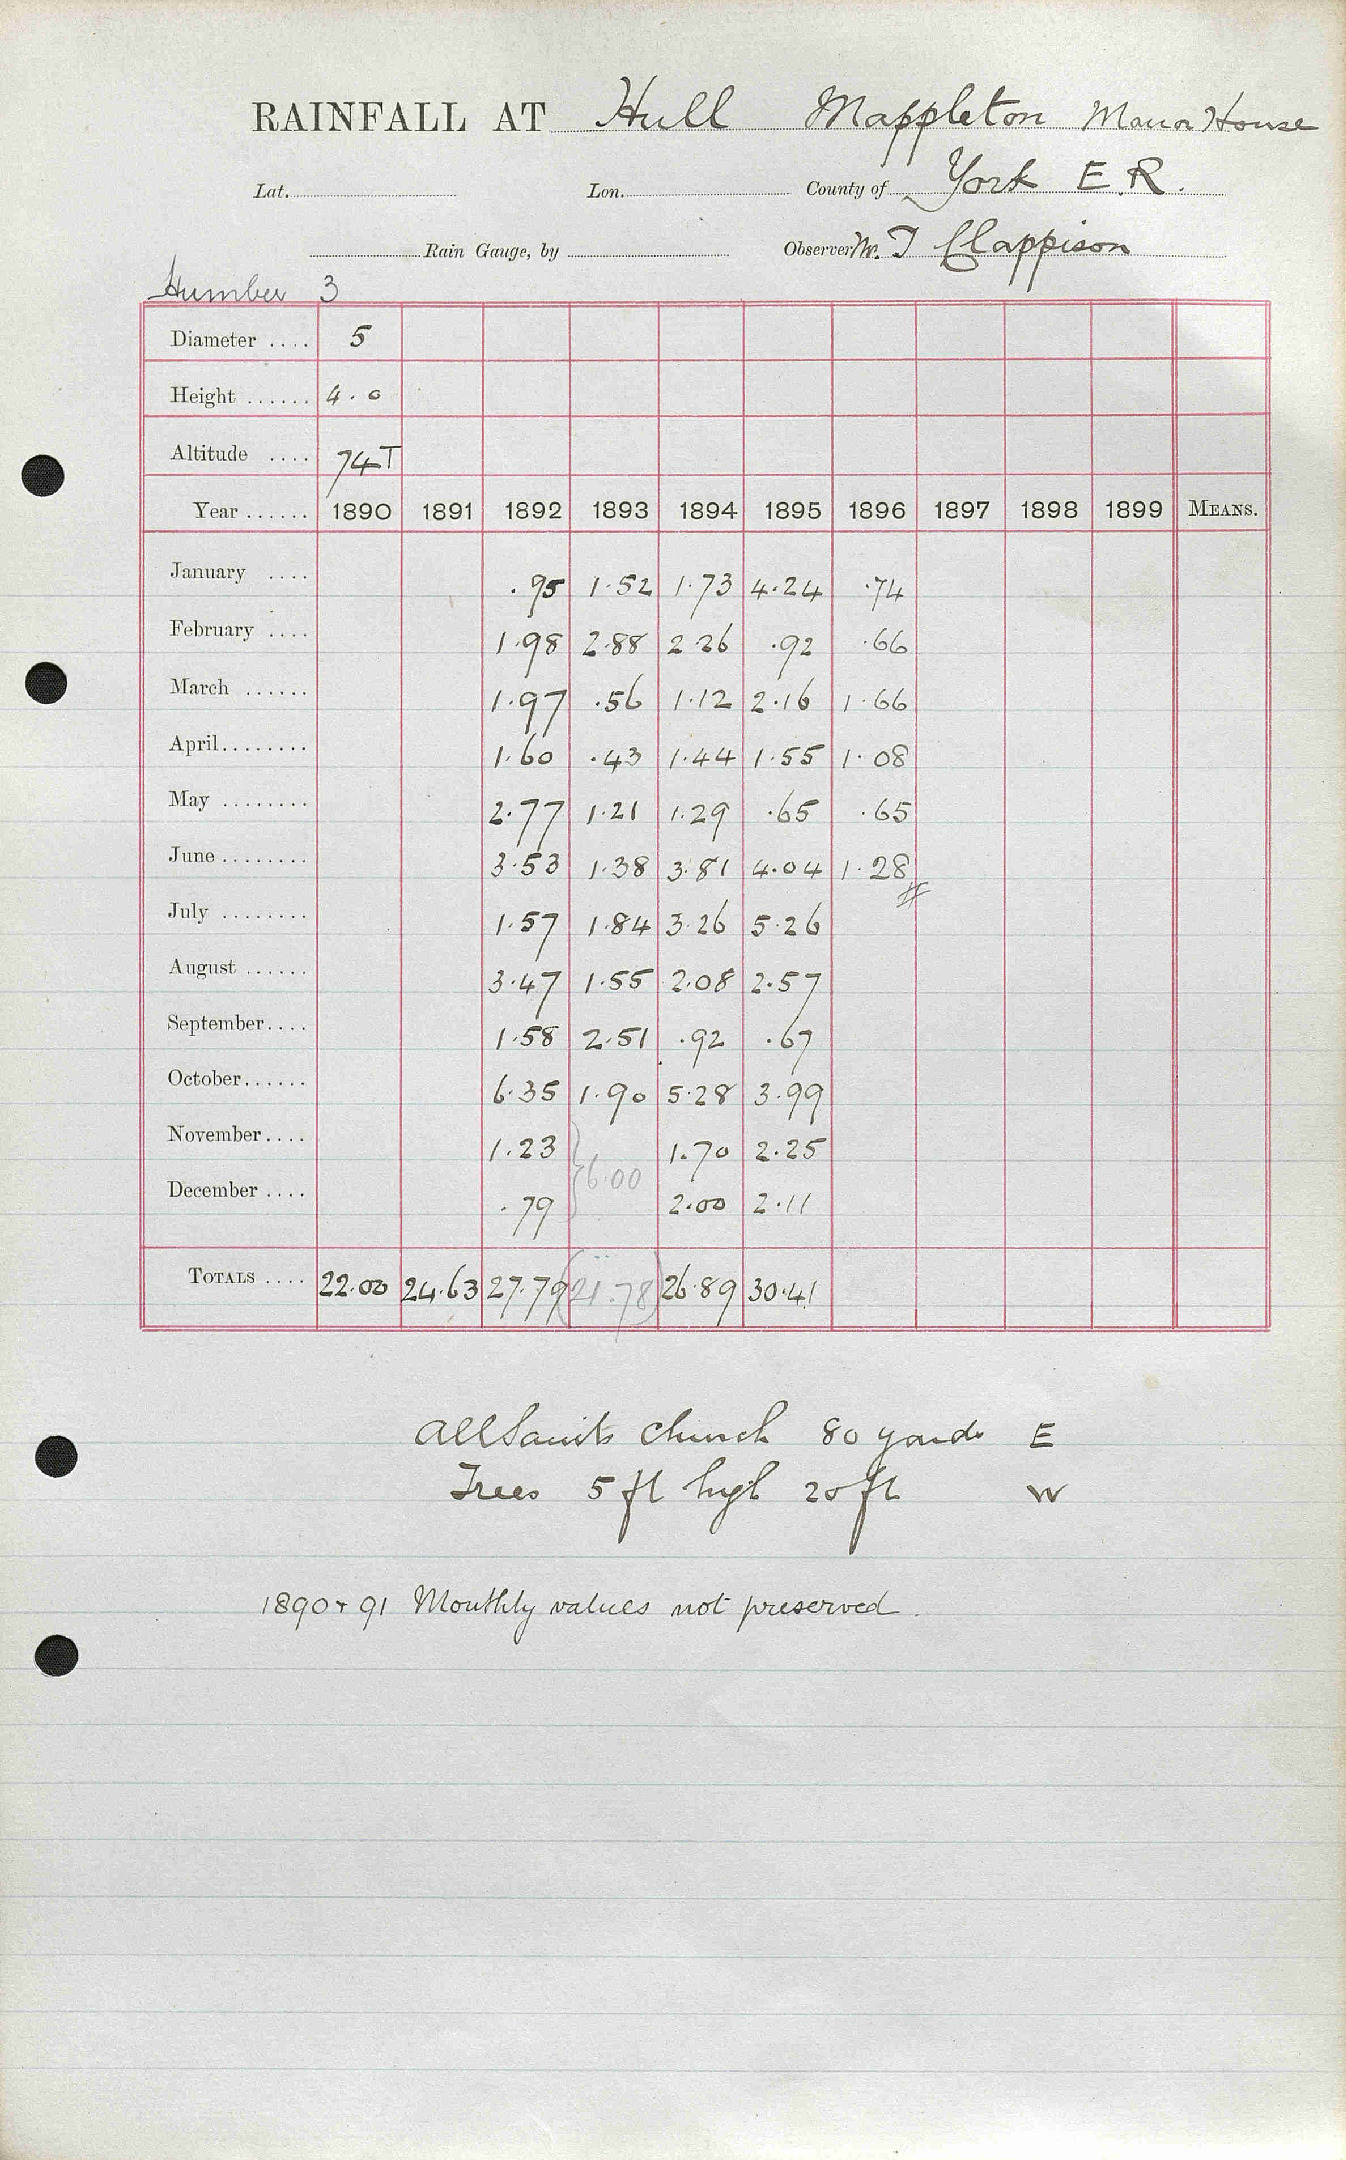 RAINFALL AT Hull Mappleton Manor House
Lat. Lon. County of York E.R.
Rain Gauge, by Observer Mr. T Clappison
Humber 3
Diameter .... 5
Height ...... 4.0
Altitude .... 74T
Year ...... 1890 1891 1892 1893 1894 1895 1896 1897 1898 1899 MEANS.
January .... .95 1.52 1.73 4.24 .74
February .... 1.98 2.88 2.26 .92 .66
March ...... 1.97 .56 1.12 2.16 1.66
April........ 1.60 .43 1.44 1.55 1.08
May ........ 2.77 1.21 1.29 .65 .65
June ........ 3.53 1.38 3.81 4.04 1.28
July ........ 1.57 1.84 3.26 5.26
August ...... 3.47 1.55 2.08 2.57
September.... 1.58 2.51 .92 .67
October...... 6.35 1.90 5.28 3.99
November.... 1.23 1.70 2.25
6.00
December .... .79 2.00 2.11
TOTALS .... 22.00 24.63 27.79 (21.78) 26.89 30.41
All Saints Church 80 yards E
Trees 5 ft high 20 ft W
1890 + 91 Monthly values not preserved.